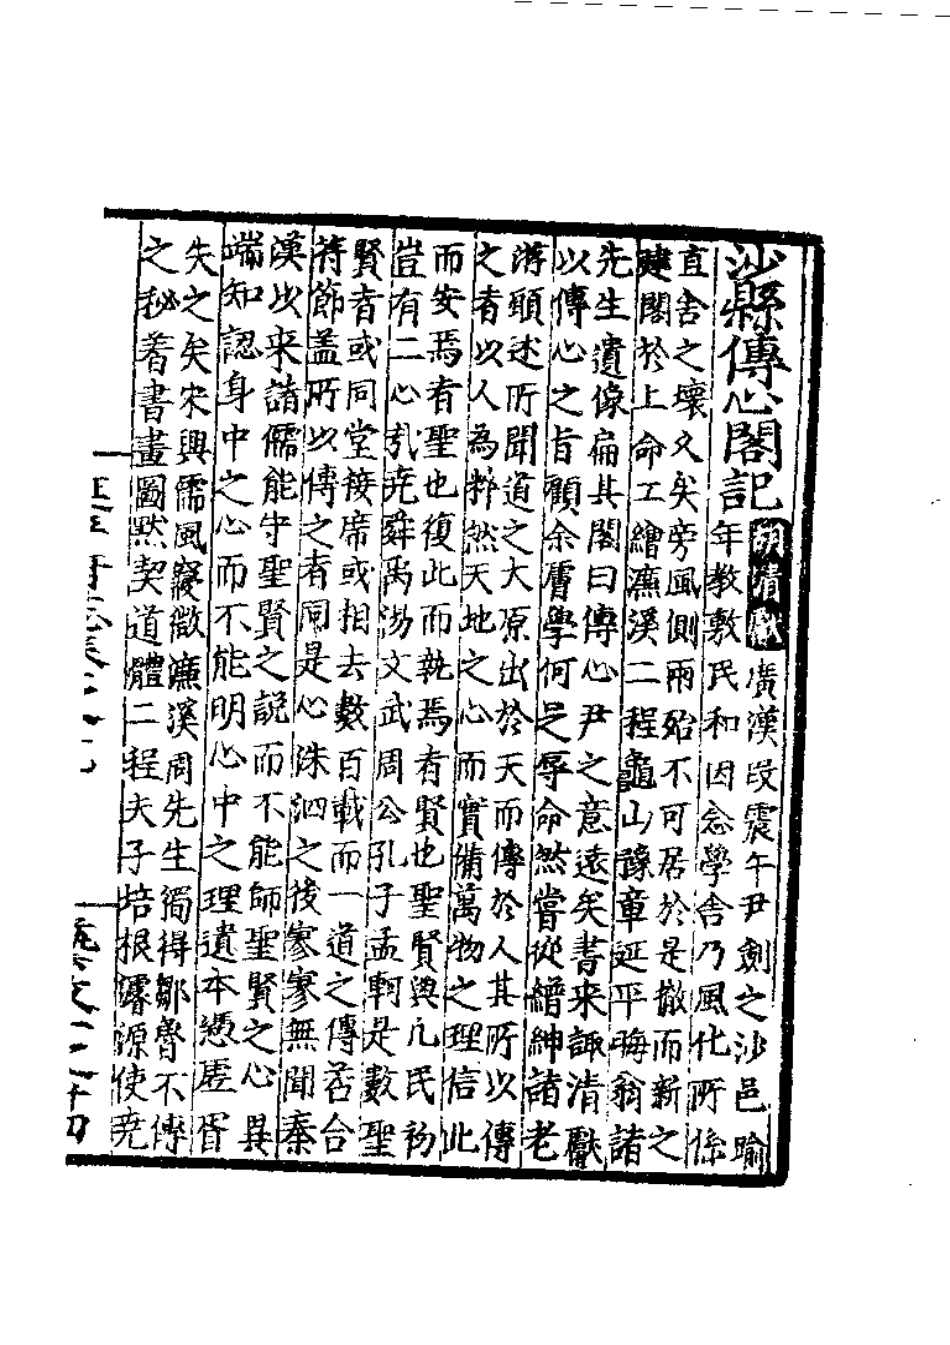 沙縣傳心閣記 胡清獻 廣漢段震午尹劍之沙邑喻
年教敷民和因念學舍乃風化所係
直舍之壞久矣旁風側雨殆不可居於是撤而新之
建閣於上命工繪濂溪二程龜山豫章延平晦翁諸
先生遺像扁其閣曰傳心尹之意遠矣書來諏清獻
以傳心之旨顧余膚學何足辱命然嘗從縉紳諸老
游願述所聞道之大原出於天而傳於人其所以傳
之者以人為粹然天地之心而實備萬物之理信此
而安焉者聖也復此而執焉者賢也聖賢與凡民初
豈有二心㢤堯舜禹湯文武周公孔子孟軻是數聖
賢者或同堂接席或相去數百載而一道之傳若合
符節盖所以傳之者同是心洙泗之後寥寥無聞秦
漢以来諸儒能守聖賢之說而不能師聖賢之心異
端知認身中之心而不能明心中之理遺本憑虛胥
失之矣宋興儒風寖微濂溪周先生獨得鄒魯不傳
之秘著書畫圖默契道體二程夫子培根濬源使堯